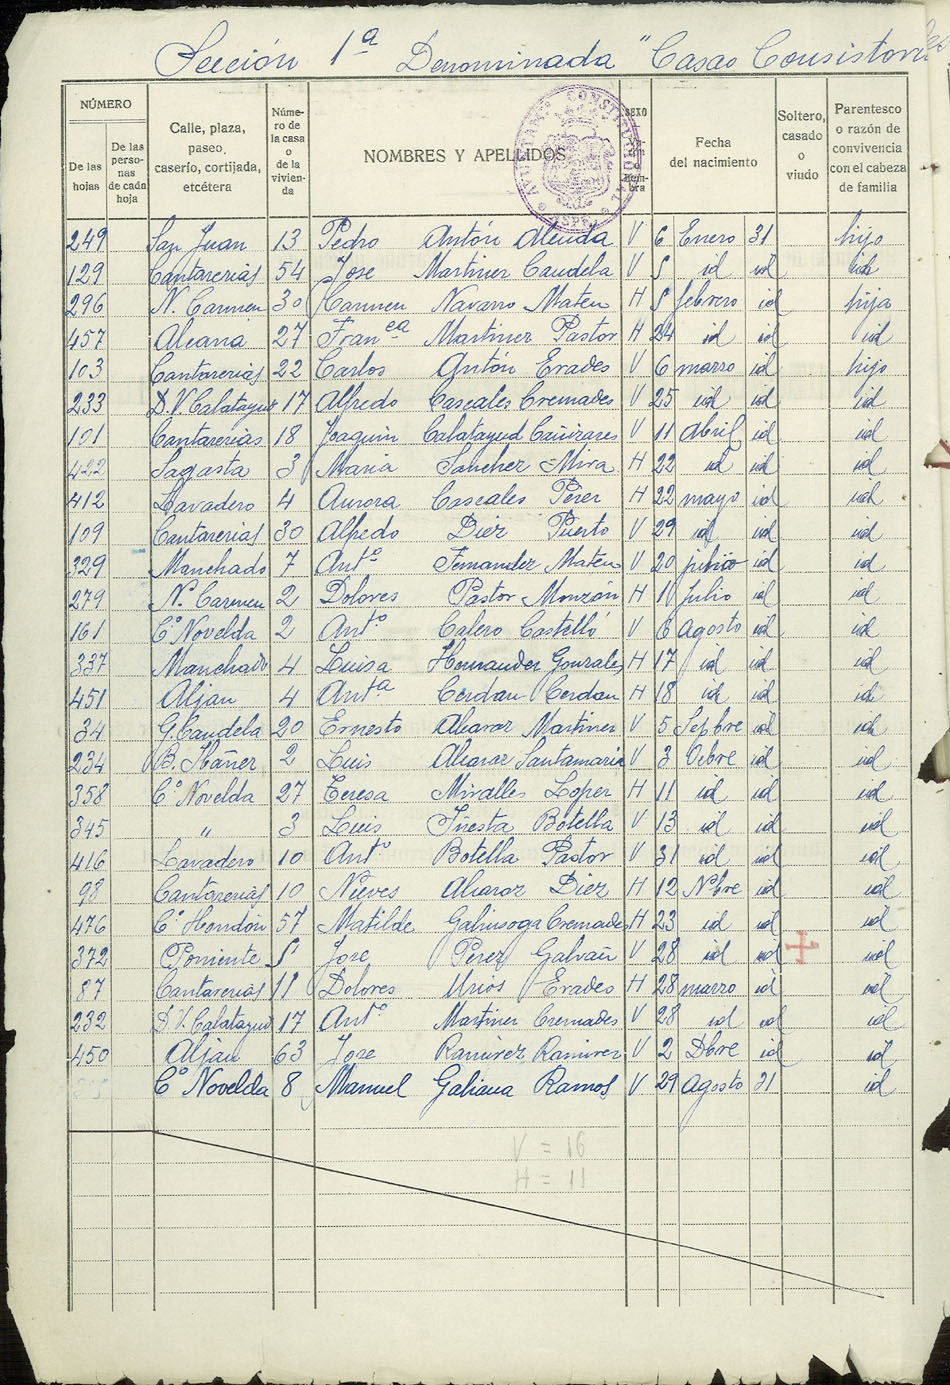 Sección 1ª Denominada "Casas Consistoriales
NÚMERO
De las hojas
De las personas de cada hoja
Calle, plaza, paseo, caserío, cortijada, etcétera
Número de la casa o de la vivienda
NOMBRES Y APELLIDOS
SEXO
Fecha del nacimiento
Soltero, casado o viudo
Parentesco o razón de convivencia con el cabeza de familia
AYUNTAMTº CONSTITUCIONAL ASPE
249 San Juan 13 Pedro Antón Alenda V 6 Enero 31 hijo
129 Cantarerias 54 Jose Martinez Candela V 5 id id id
296 N. Carmen 30 Carmen Navarro Mateu H 5 febrero id hija
457 Alcana 27 Franca Martinez Pastor H 24 id id id
103 Cantarerias 22 Carlos Antón Erades V 6 marzo id hijo
233 D. V. Calatayud 17 Alfredo Caseales Cremades V 25 id id id
101 Cantarerias 18 Joaquin Calatayud Cañizares V 11 Abril id id
422 Sagasta 3 Maria Sanchez Mira H 22 id id id
412 Lavadero 4 Aurora Caseales Perez H 22 mayo id id
109 Cantarerias 30 Alfredo Diez Puerto V 29 id id id
329 Manchado 7 Antº Fernandez Mateu V 20 id id
279 Nª Carmen 2 Dolores Pastor Monzón H 1 Julio id id
161 Cº Novelda 2 Antº Calero Castelló V 6 Agosto id id
337 Manchado 4 Luisa Hernandez Gonzales H 17 id id id
451 Aljau 4 Antª Cerdan Cerdan H 18 id id id
34 G. Candela 20 Ernesto Alcaraz Martinez V 5 Sepbre id id
234 B. Ibáñez 2 Luis Alcaraz Santamaria V 3 Ocbre id id
358 Cº Novelda 27 Teresa Miralles Lopez H 11 id id id
345 " 3 Luis Iñesta Botella V 13 id id id
416 Lavadero 10 Antº Botella Pastor V 31 id id id
98 Cantarerias 10 Nieves Alcaraz Diez H 12 Nbre id id
476 Cº Hondón 57 Matilde Galinsoga Cremades H 23 id id id
372 Poniente 5 Jose Pérez Galvañ V 28 id id id
87 Cantarerias 11 Dolores Urios Erades H 28 marzo id id
232 D. V. Calatayud 17 Antº Martinez Cremades V 28 id id id
450 Aljau 63 Jose Ramirez Ramirez V 2 Dbre id id
Cº Novelda 8 Manuel Galiana Ramos V 29 Agosto 31 id
V = 16
H = 11